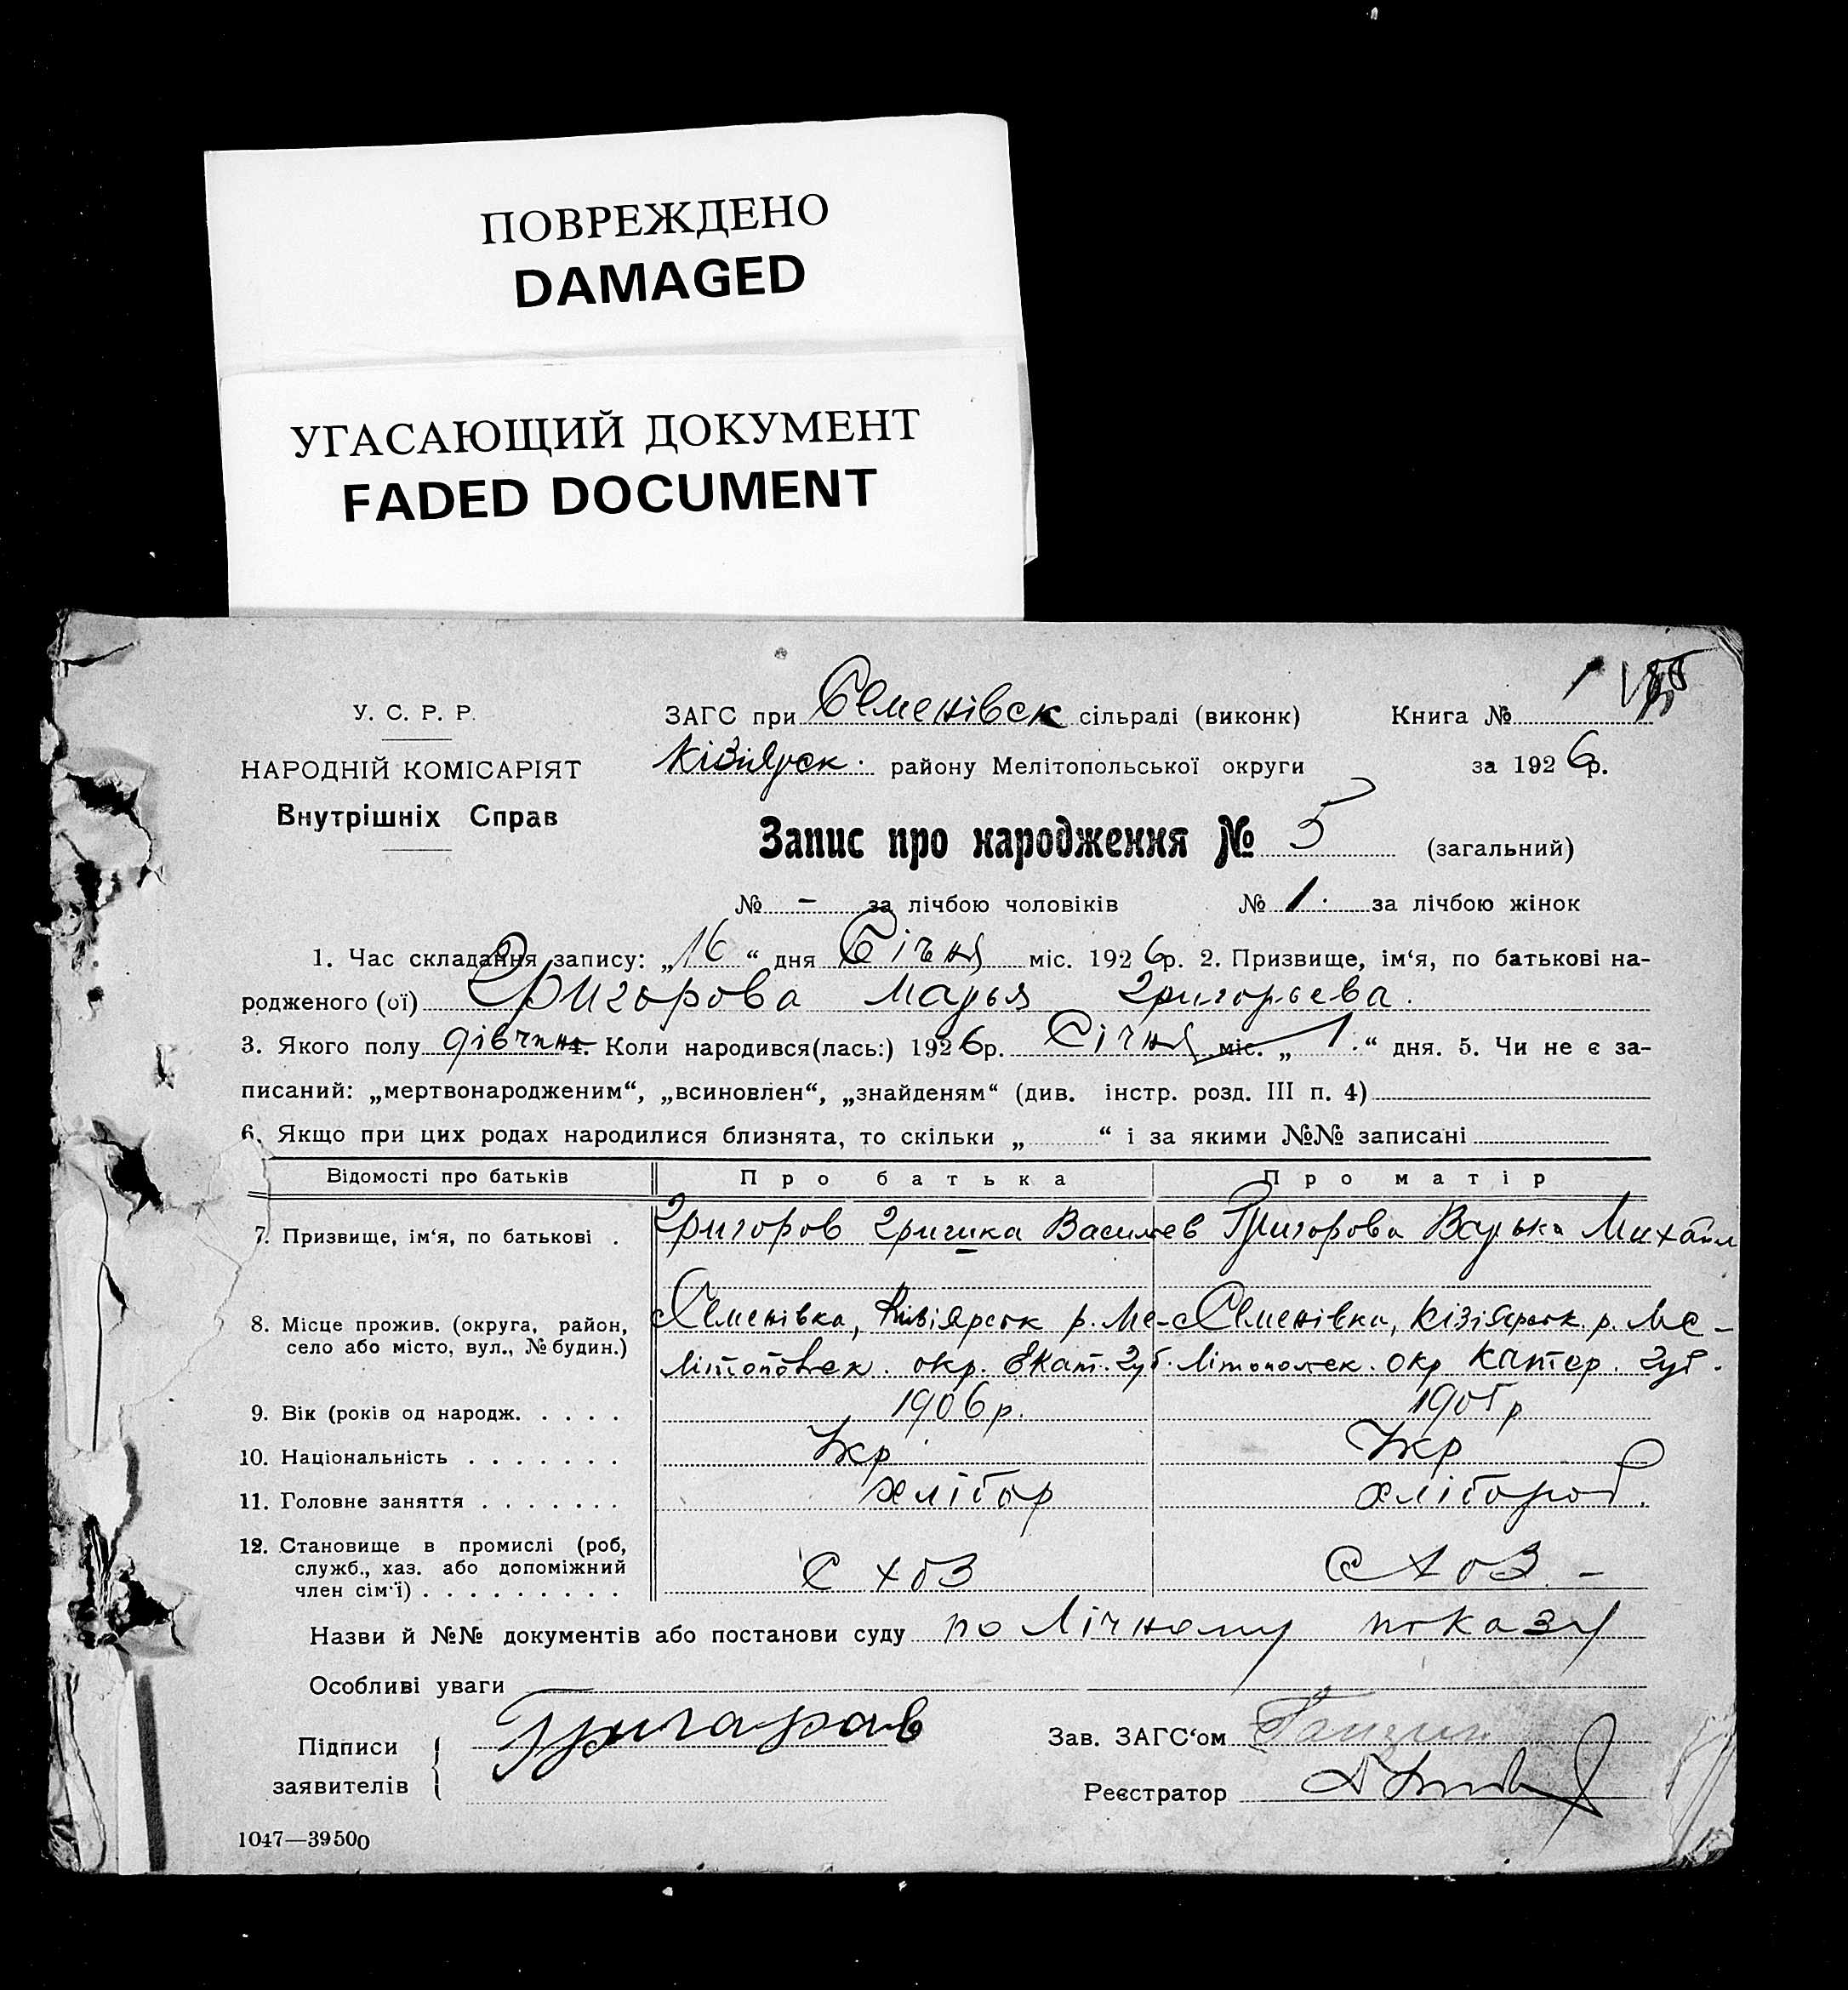 ПОВРЕЖДЕНО
DAMAGED
УГАСАЮЩИЙ ДОКУМЕНТ
FADED DOCUMENT
У. С. Р. Р.
НАРОДНІЙ КОМІСАРІЯТ
Внутрішніх Справ
ЗАГС при Семенівск сільраді (виконк) Книга № 1
Кізіярск. району Мелітопольської округи за 1926р.
Запис про народження № 5 (загальний)
№ - за лічбою чоловіків № 1. за лічбою жінок
1. Час складання запису: „16“ дня Січня міс. 1926р. 2. Призвище, ім‘я, по батькові на-
родженого (ої) Григорова Марья Григорьева.
3. Якого полу дівчин 4. Коли народився(лась:) 1926р. Січня міс. „1.“ дня. 5. Чи не є за-
писаний: „мертвонародженим“, „всиновлен“, „знайденям“ (див. інстр. розд. III п. 4)
6. Якщо при цих родах народилися близнята, то скільки „ “ і за якими №№ записані
Відомості про батьків Про батька Про матір
7. Призвище, ім‘я, по батькові . Григоров Григика Василев Григорова Варька Михайл
8. Місце прожив. (округа, район, село або місто, вул., № будин.) Семенівка, Кізіярськ р. Ме- Семенівка, Кізіярськ р. Ме-
літопольск. окр. Екат. Губ. літополск. окр Катер. Губ.
9. Вік (років од народж. . . . . 1906р. 1905р
10. Національність . . . . . . . Укр Укр
11. Головне заняття . . . . . . . хлібор хлібороб.
12. Становище в промислі (роб,
служб., хаз. або допоміжний
член сім‘ї) . . . . . . . . . С хоз С хоз -
Назви й №№ документів або постанови суду по лічному показу
Особливі уваги
Підписи Григаров Зав. ЗАГС‘ом
заявителів Реєстратор
1047—39500